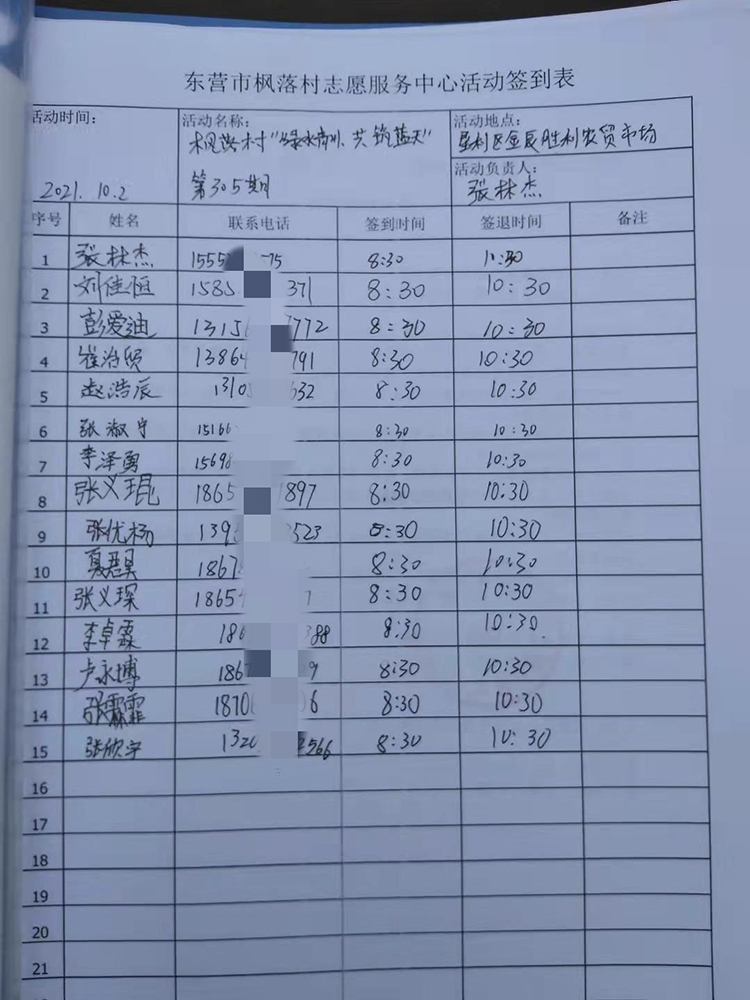 东营市枫落村志愿服务中心活动签到表
活动时间: 活动名称: 活动地点:
枫落村"绿水青山、共筑蓝天" 垦利区金辰胜利农贸市场
活动负责人:
2021.10.2 第305期 张林杰
序号 姓名 联系电话 签到时间 签退时间 备注
1 张林杰 1555 75 8:30 10:30
2 刘佳恒 1585 371 8:30 10:30
3 彭爱迪 1315 772 8:30 10:30
4 崔浩 1386 791 8:30 10:30
5 赵浩辰 1310 632 8:30 10:30
6 张淑宁 15166 8:30 10:30
7 李泽勇 15698 8:30 10:30
8 张义琨 1865 1897 8:30 10:30
9 张优杨 139 523 8:30 10:30
10 夏君昊 1867 8:30 10:30
11 张义琛 1865 8:30 10:30
12 李卓霖 186 388 8:30 10:30
13 卢永博 186 9 8:30 10:30
14 张霖霏 1870 6 8:30 10:30
15 张欣宇 132 2566 8:30 10:30
16
17
18
19
20
21